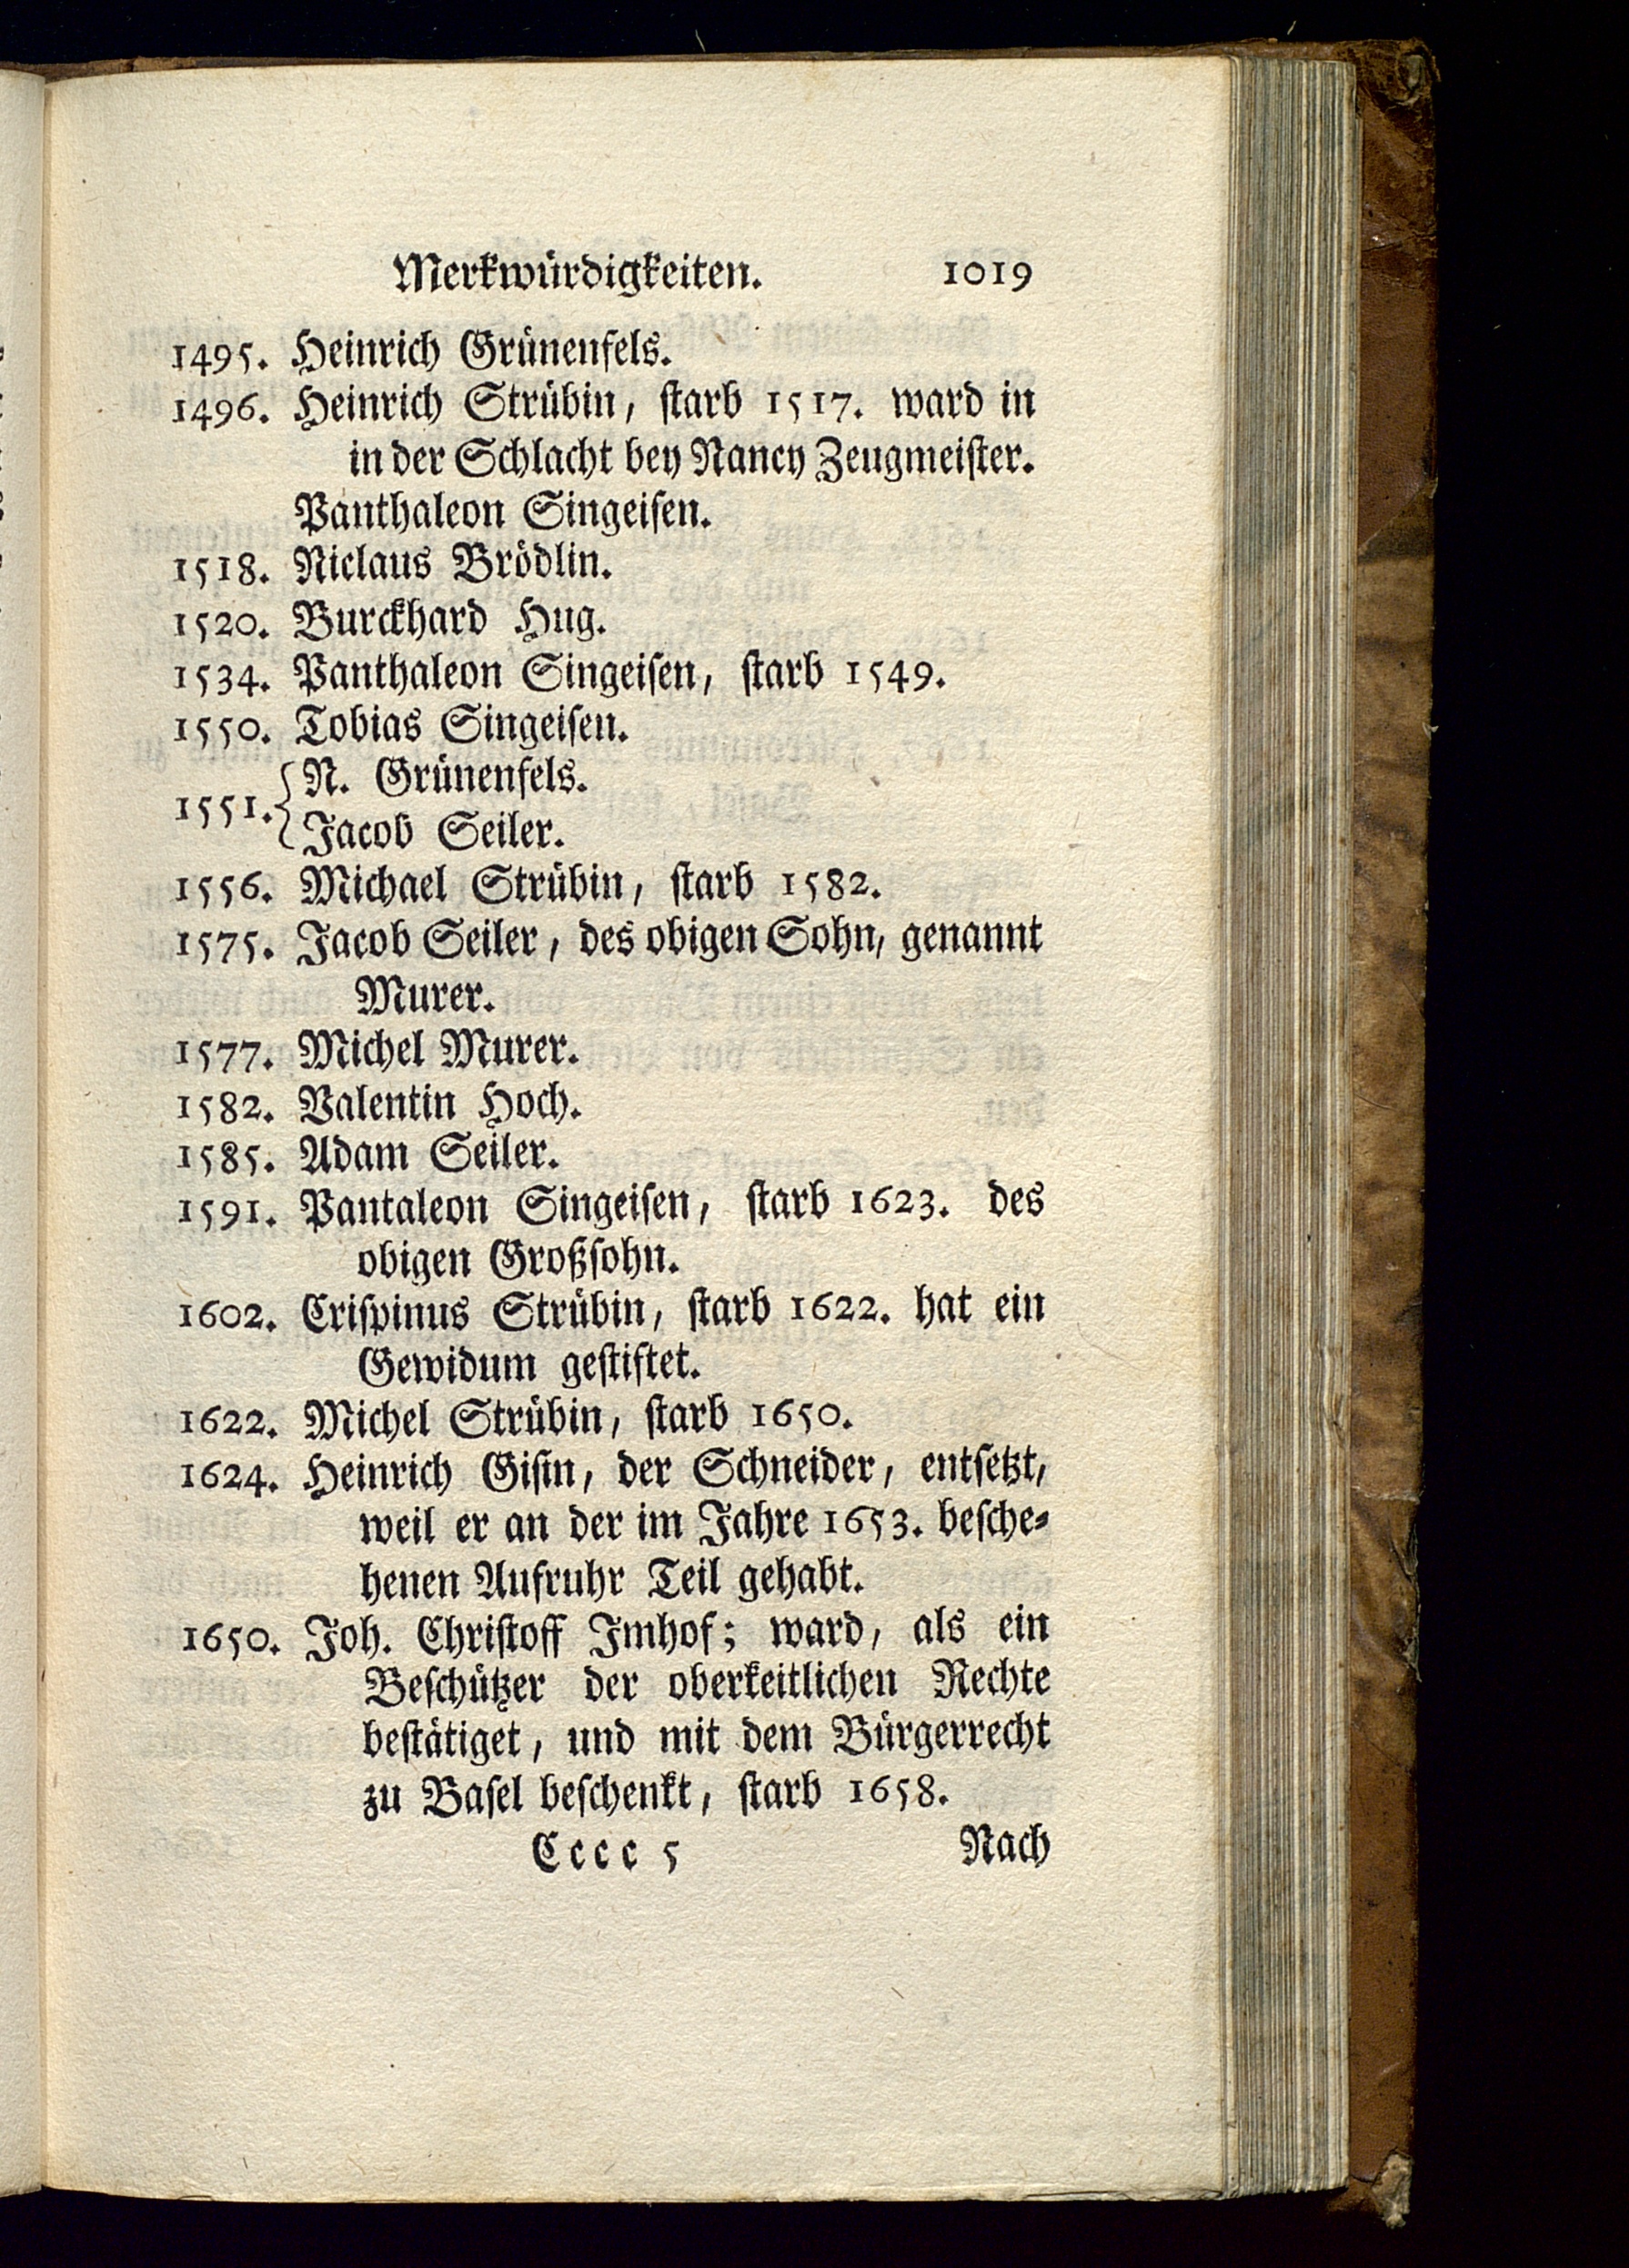 Merkwürdigkeiten. 1019
1495. Heinrich Grünenfels.
1496. Heinrich Strübin, ſtarb 1517. ward in
in der Schlacht bey Nancy Zeugmeiſter.
Panthaleon Singeiſen.
1518. Niclaus Brödlin.
1520. Burckhard Hug.
1534. Panthaleon Singeiſen, ſtarb 1549.
1550. Tobias Singeiſen.
1551. { N. Grünenfels.
Jacob Seiler.
1556. Michael Strübin, ſtarb 1582.
1575. Jacob Seiler, des obigen Sohn, genannt
Murer.
1577. Michel Murer.
1582. Valentin Hoch.
1585. Adam Seiler.
1591. Pantaleon Singeiſen, ſtarb 1623. des
obigen Großſohn.
1602. Criſpinus Strübin, ſtarb 1622. hat ein
Gewidum geſtiftet.
1622. Michel Strübin, ſtarb 1650.
1624. Heinrich Giſin, der Schneider, entſetzt,
weil er an der im Jahre 1653. beſche⸗
henen Aufruhr Teil gehabt.
1650. Joh. Chriſtoff Imhof; ward, als ein
Beſchützer der oberkeitlichen Rechte
beſtätiget, und mit dem Bürgerrecht
zu Baſel beſchenkt, ſtarb 1658.
Cccc 5 Nach